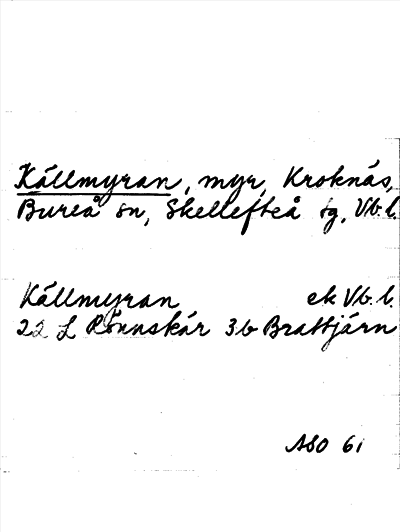 Källmyran, myr, Kroknäs,
Bureå sn, Skellefteå tg, Vb. l.
Källmyran ek Vb. l.
22 L Rönnskär 3b Brattjärn
ASO 61